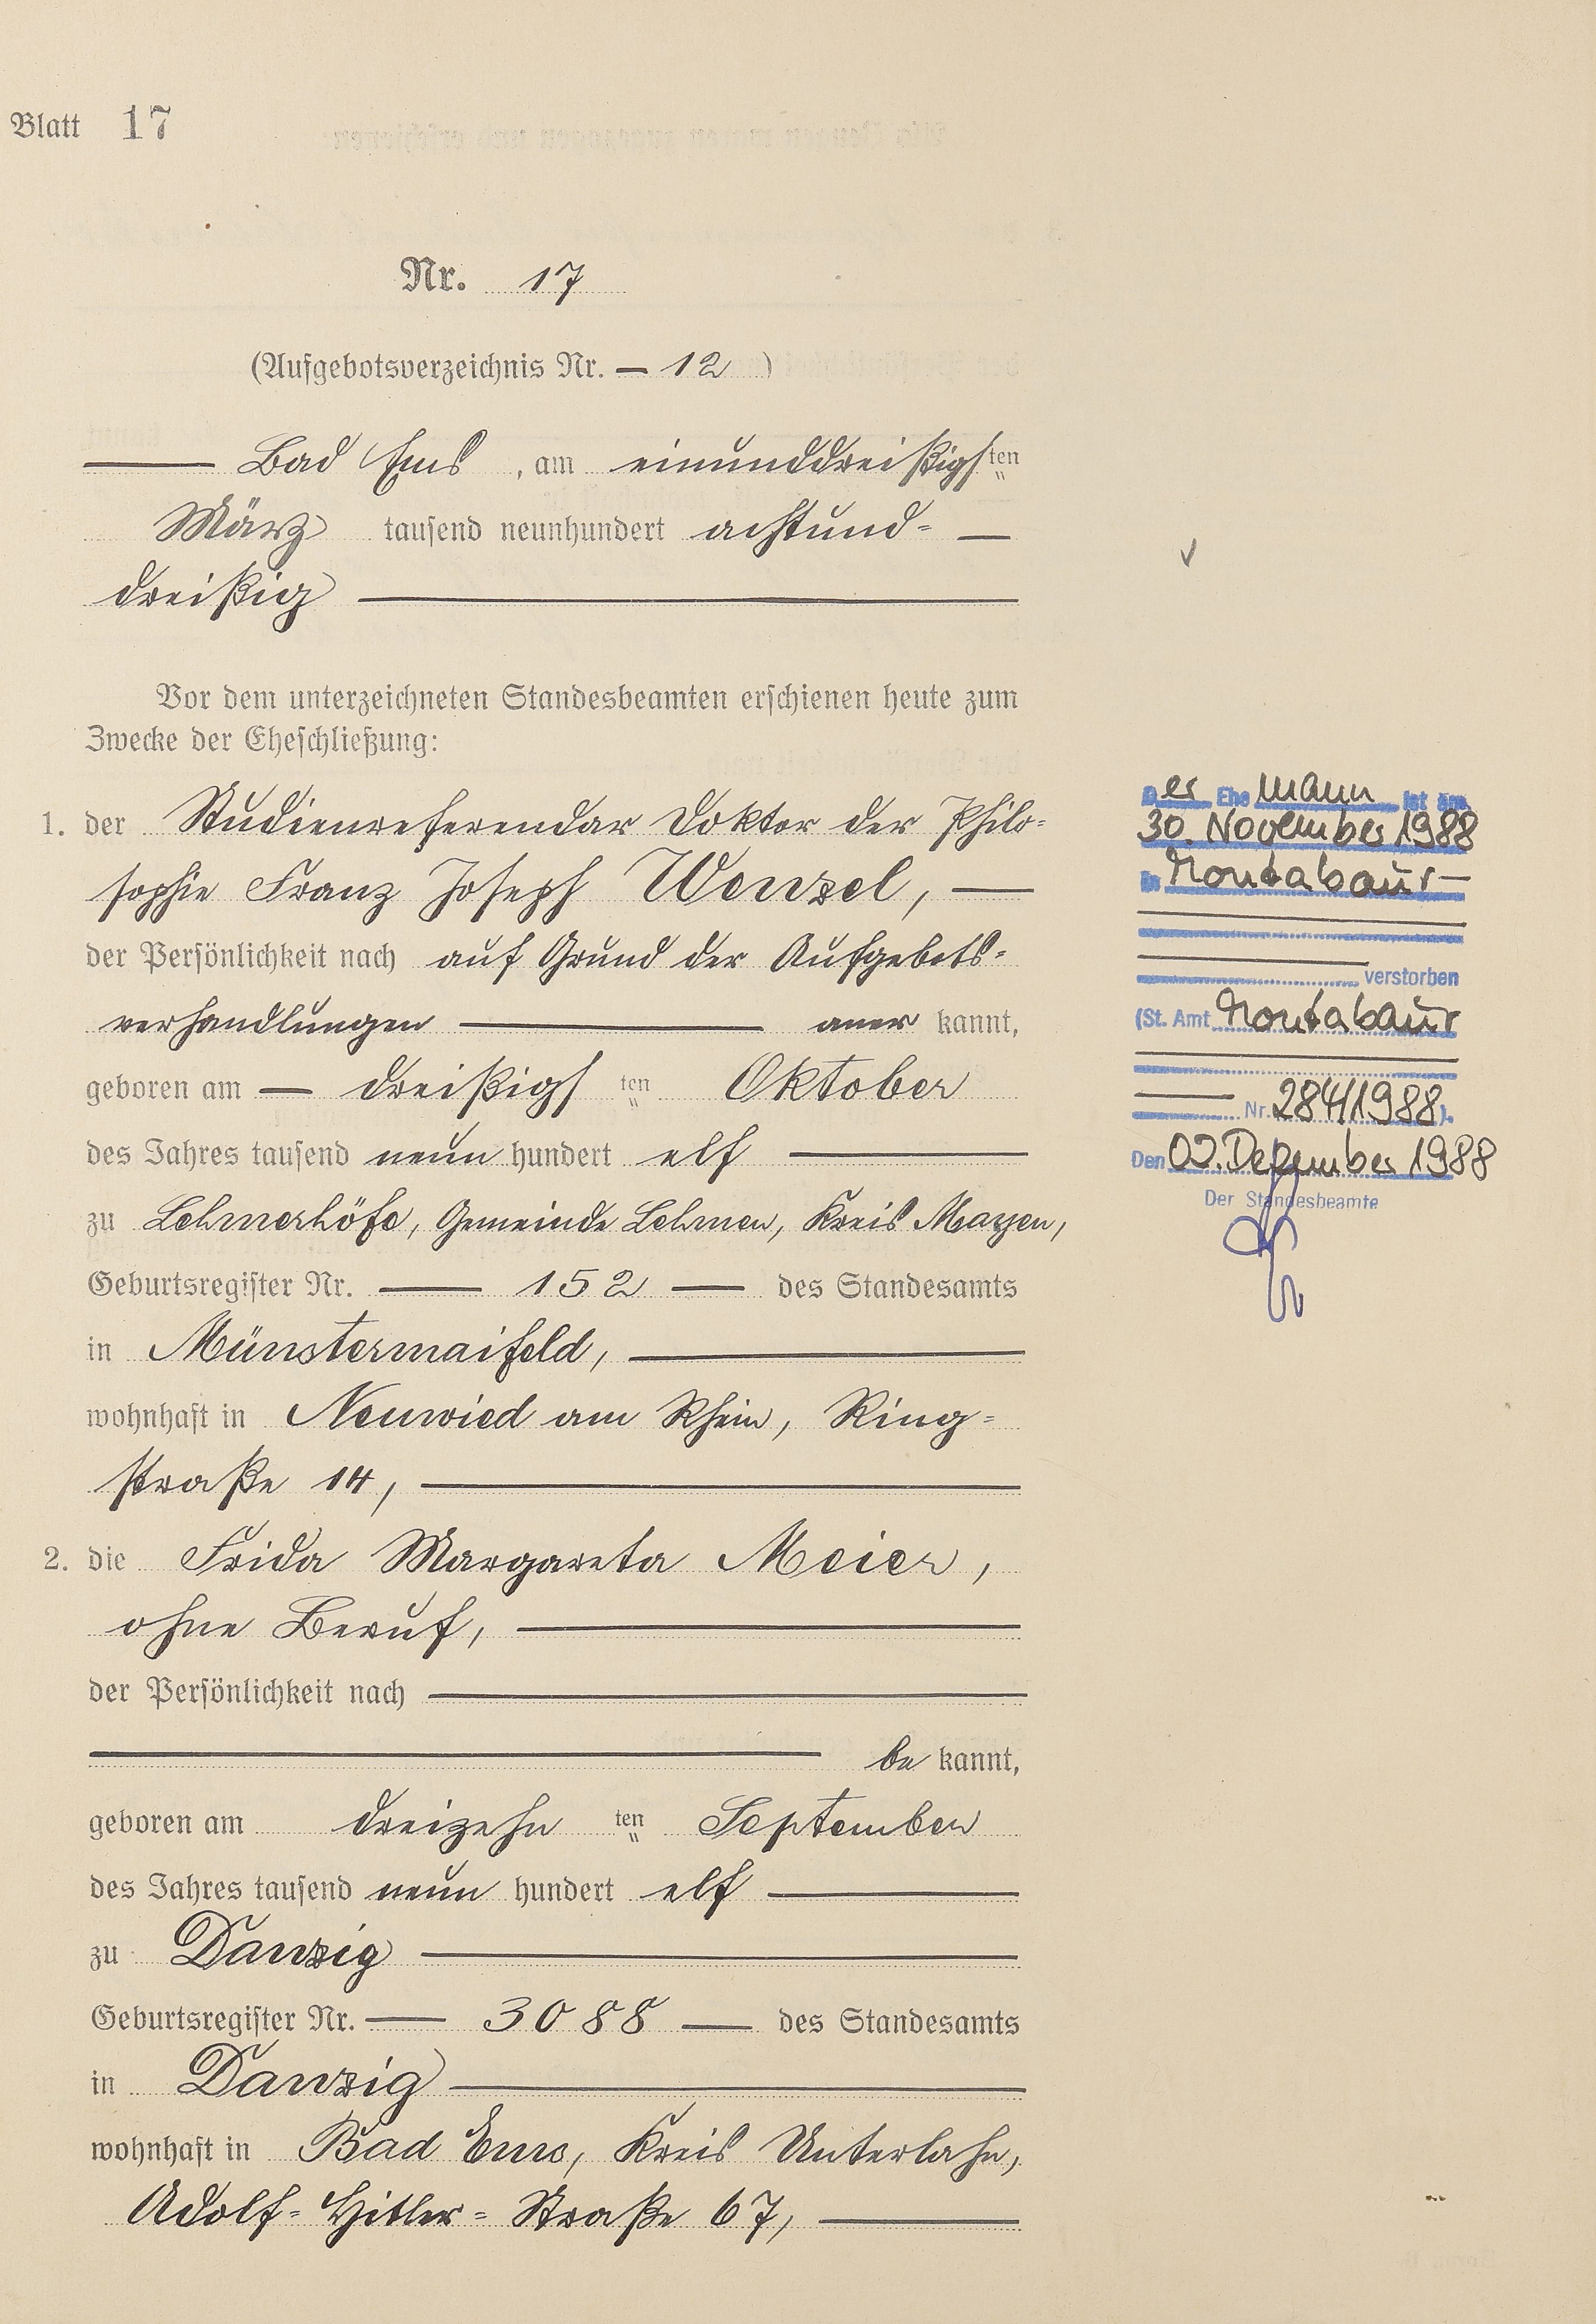 Blatt 17
Nr. 17
(Aufgebotsverzeichnis Nr. — 12 )
Bad Ems, am einunddreißigsten
März tausend neunhundert achtund-
dreißig
Vor dem unterzeichneten Standesbeamten erschienen heute zum
Zwecke der Eheschließung:
1. der Studienreferendar Doktor der Philo-
sophie Franz Joseph Wenzel, —
der Persönlichkeit nach auf Grund der Aufgebots-
verhandlungen — aner kannt,
geboren am — dreißigsten Oktober
des Jahres tausend neun hundert elf —
zu Lehmerhöfe, Gemeinde Lehmen, Kreis Mayen,
Geburtsregister Nr. — 152 — des Standesamts
in Münstermaifeld, —
wohnhaft in Neuwied am Rhein, Ring-
straße 14, —
2. die Frida Margareta Meier,
ohne Beruf, —
der Persönlichkeit nach —
— be kannt,
geboren am dreizehn ten September
des Jahres tausend neun hundert elf —
zu Danzig —
Geburtsregister Nr. — 3088 — des Standesamts
in Danzig —
wohnhaft in Bad Ems, Kreis Unterlahn,
Adolf-Hitler-Straße 67, —
Der Ehemann ist am
30. November 1988
in Montabaur —
verstorben
(St. Amt Montabaur
Nr. 284/1988).
Den 02. Dezember 1988
Der Standesbeamte